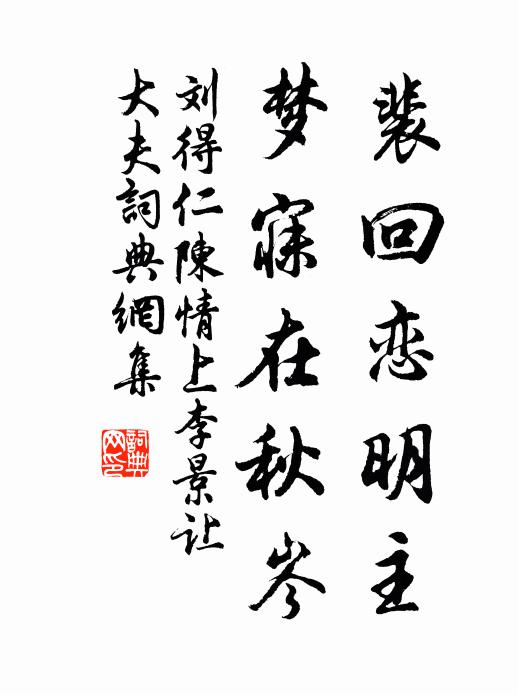 裴回恋明主
梦寐在秋岑
刘得仁陳情上李景让
大夫詞典網集
詞典网印